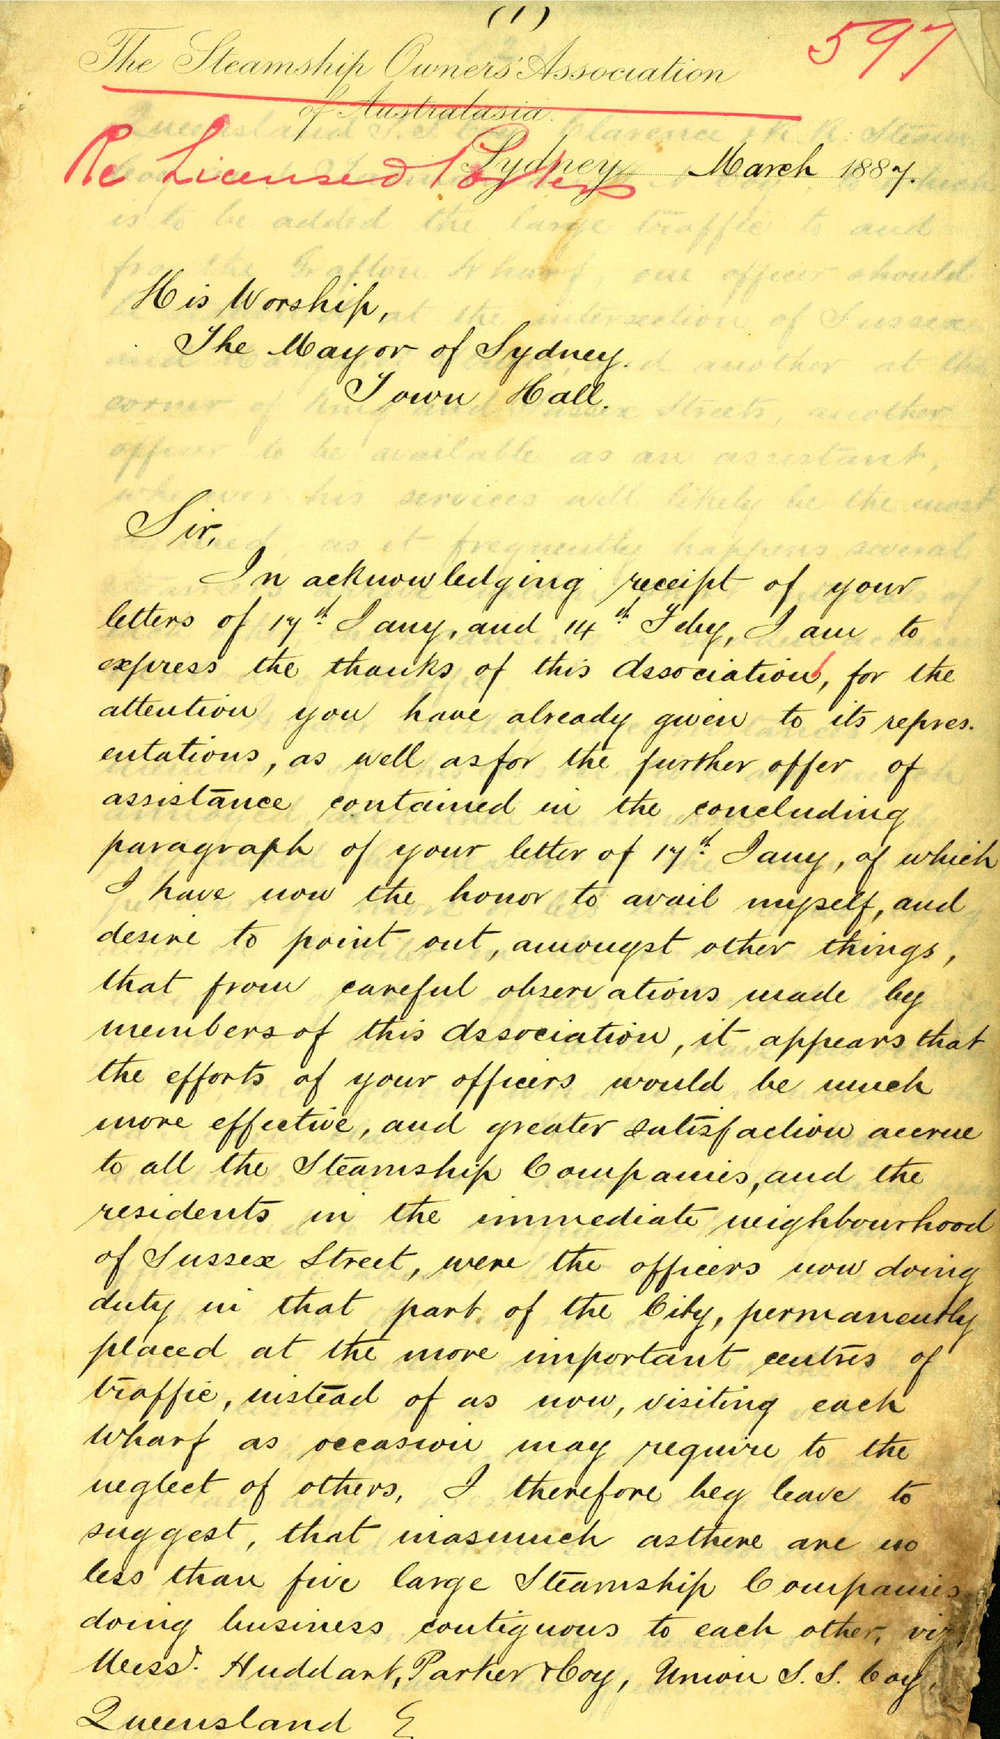 (1)
597
The Steamship Owners' Association
of Australasia.
Re Licensed Porters
Sydney March 1887.
His Worship,
The Mayor of Sydney.
Town Hall.
Sir,
In acknowledging receipt of your
letters of 17th Jany, and 14th Feby, I am to
express the thanks of this Association, for the
attention you have already given to its repres-
entations, as well as for the further offer of
assistance contained in the concluding
paragraph of your letter of 17th Jany, of which
I have now the honor to avail myself, and
desire to point out, amongst other things,
that from careful observations made by
members of this Association, it appears that
the efforts of your officers would be much
more effective, and greater satisfaction accrue
to all the Steamship Companies, and the
residents in the immediate neighbourhood
of Sussex Street, were the officers now doing
duty in that part of the City, permanently
placed at the more important centres of
traffic, instead of as now, visiting each
Wharf as occasion may require to the
neglect of others. I therefore beg leave to
suggest, that inasmuch as there are no
less than five large Steamship Companies
doing business contiguous to each other, viz.
Messrs. Huddart, Parker & Coy, Union S.S. Coy,
Queensland